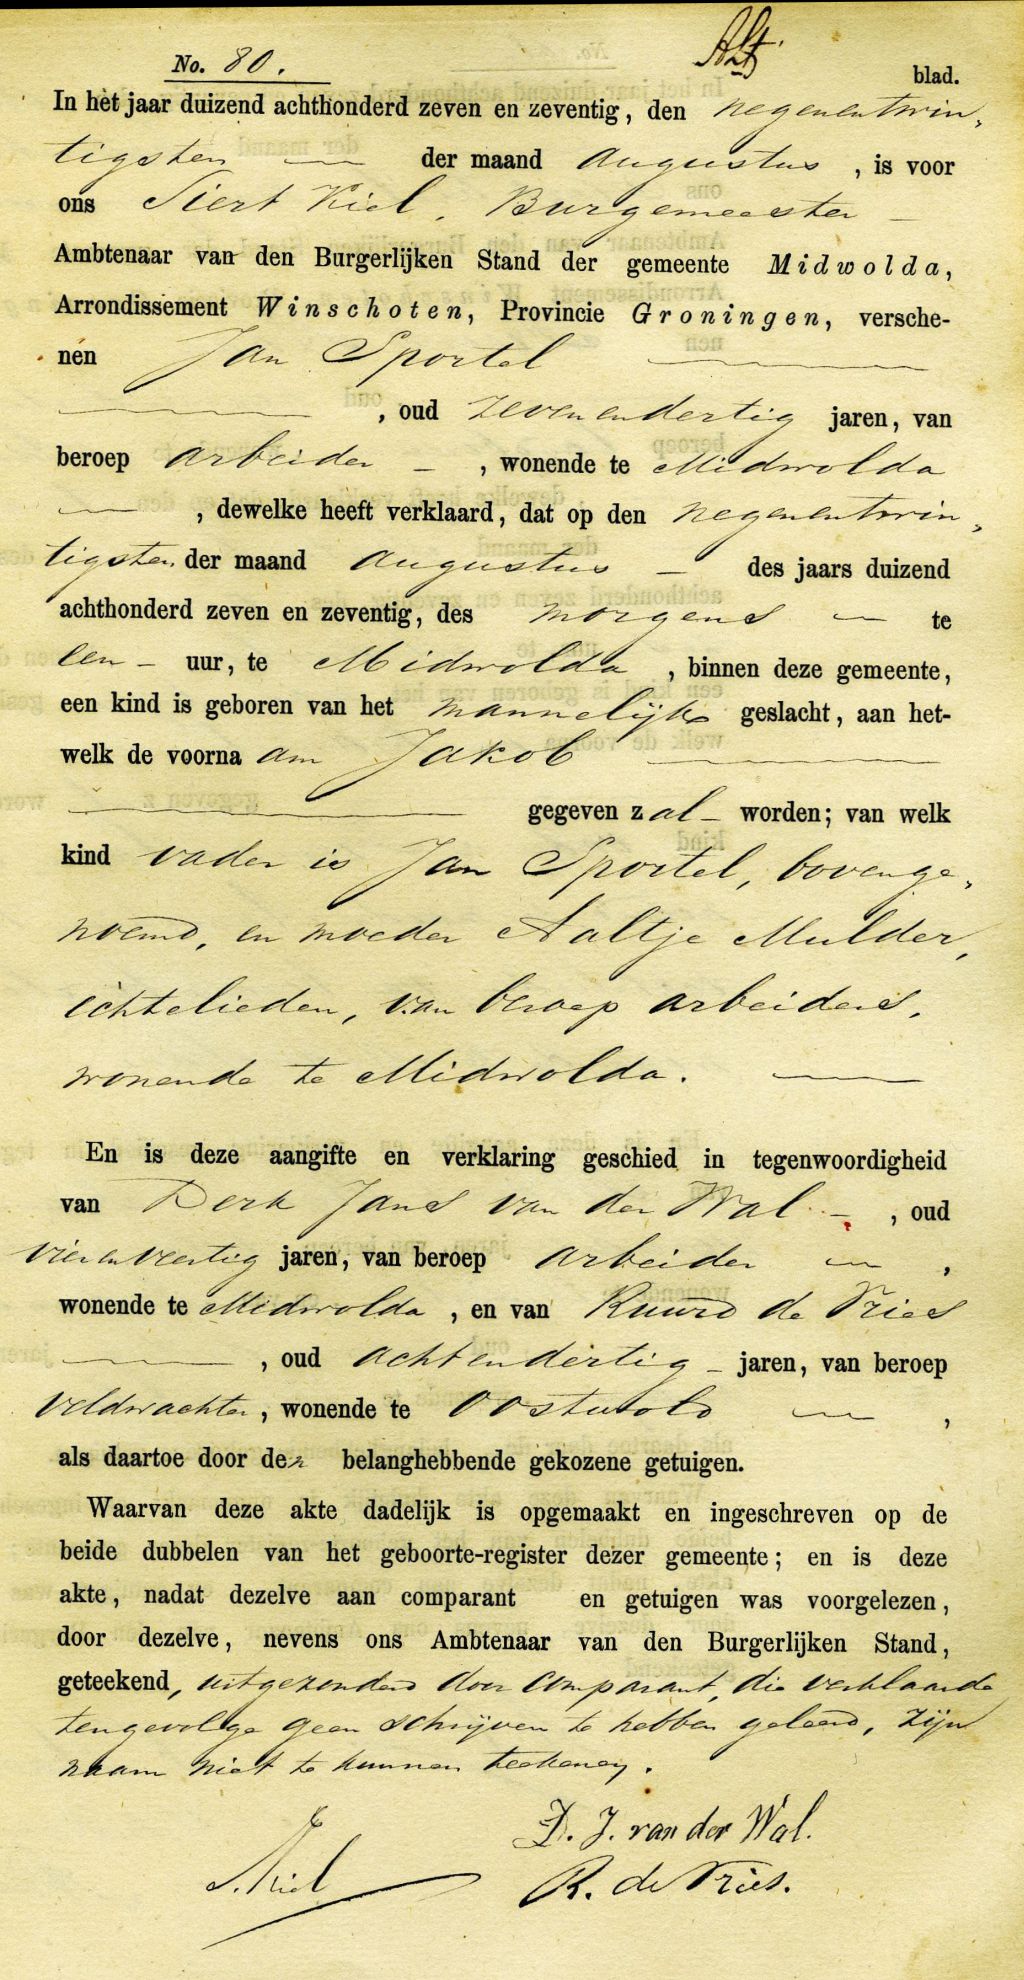 No. 80.
blad.
In het jaar duizend achthonderd zeven en zeventig, den negenentwin-
tigsten — der maand Augustus, is voor
ons Siert Kiel, Burgemeester —
Ambtenaar van den Burgerlijken Stand der gemeente Midwolda,
Arrondissement Winschoten, Provincie Groningen, versche-
nen Jan Sportel —
—, oud zevenendertig jaren, van
beroep arbeider —, wonende te Midwolda
—, dewelke heeft verklaard, dat op den negenentwin-
tigsten der maand Augustus — des jaars duizend
achthonderd zeven en zeventig, des morgens — te
een — uur, te Midwolda, binnen deze gemeente,
een kind is geboren van het mannelijk geslacht, aan het-
welk de voornaam Jakob —
— gegeven zal — worden; van welk
kind vader is Jan Sportel, bovenge-
noemd, en moeder Aaltje Mulder,
echtelieden, van beroep arbeiders,
wonende te Midwolda. —
En is deze aangifte en verklaring geschied in tegenwoordigheid
van Derk Jans van der Wal —, oud
vierenveertig jaren, van beroep arbeider —,
wonende te Midwolda, en van Ruurd de Vries
—, oud achtendertig — jaren, van beroep
veldwachter, wonende te Oostwold —,
als daartoe door den belanghebbende gekozene getuigen.
Waarvan deze akte dadelijk is opgemaakt en ingeschreven op de
beide dubbelen van het geboorte-register dezer gemeente; en is deze
akte, nadat dezelve aan comparant en getuigen was voorgelezen,
door dezelve, nevens ons Ambtenaar van den Burgerlijken Stand,
geteekend, uitgezonderd door comparant, die verklaarde
tengevolge geen schrijven te hebben geleerd, zijn
naam niet te kunnen teekenen.
D. J. van der Wal.
S. Kiel
R. de Vries.